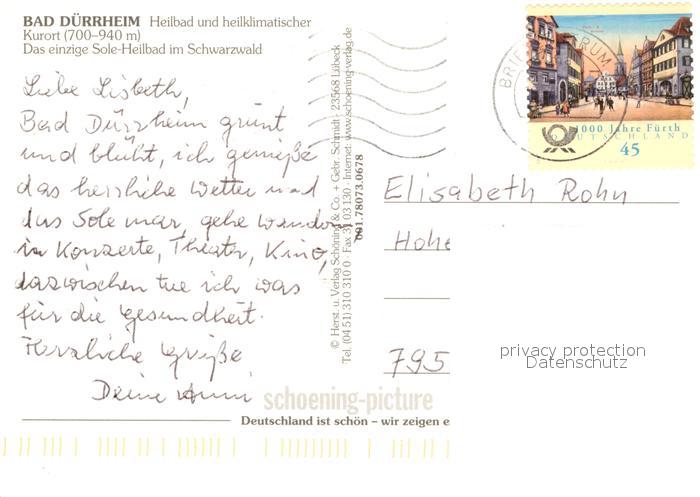 BAD DÜRRHEIM Heilbad und heilklimatischer
Kurort (700–940 m)
Das einzige Sole-Heilbad im Schwarzwald
Liebe Lisbeth,
Bad Dürrheim grünt
und blüht, ich genieße
das herrliche Wetter und
das Sole mar, gehe wandern
in Konzerte, Theater, Kino,
dazwischen tue ich was
für die Gesundheit.
Herzliche Grüße
Deine Anni
© Herst. u. Verlag Schöning & Co. + Gebr. Schmidt · 23568 Lübeck
Tel. (04 51) 310 310 0 · Fax 31 03 130 · Internet: www.schoening-verlag.de
601.78073.0678
schoening-picture
Deutschland ist schön – wir zeigen e
BRIE
RUM
1000 Jahre Fürth
DEUTSCHLAND
45
Elisabeth Rohn
Hohe
795
privacy protection
Datenschutz